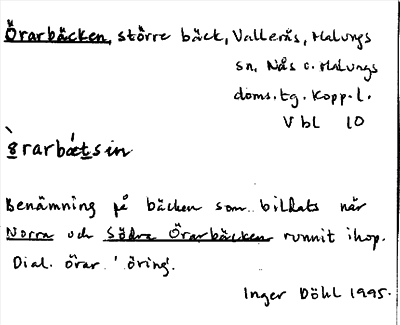 Örarbäcken, större bäck, Vallerås, Malungs
sn, Nås o. Malungs
doms.tg. Kopp. l.
V bl 10
`ȣrarbǽtsin
Benämning på bäcken som bildats när
Norra och Södra Örarbäcken runnit ihop.
Dial. örar 'öring'.
Inger Döhl 1995.